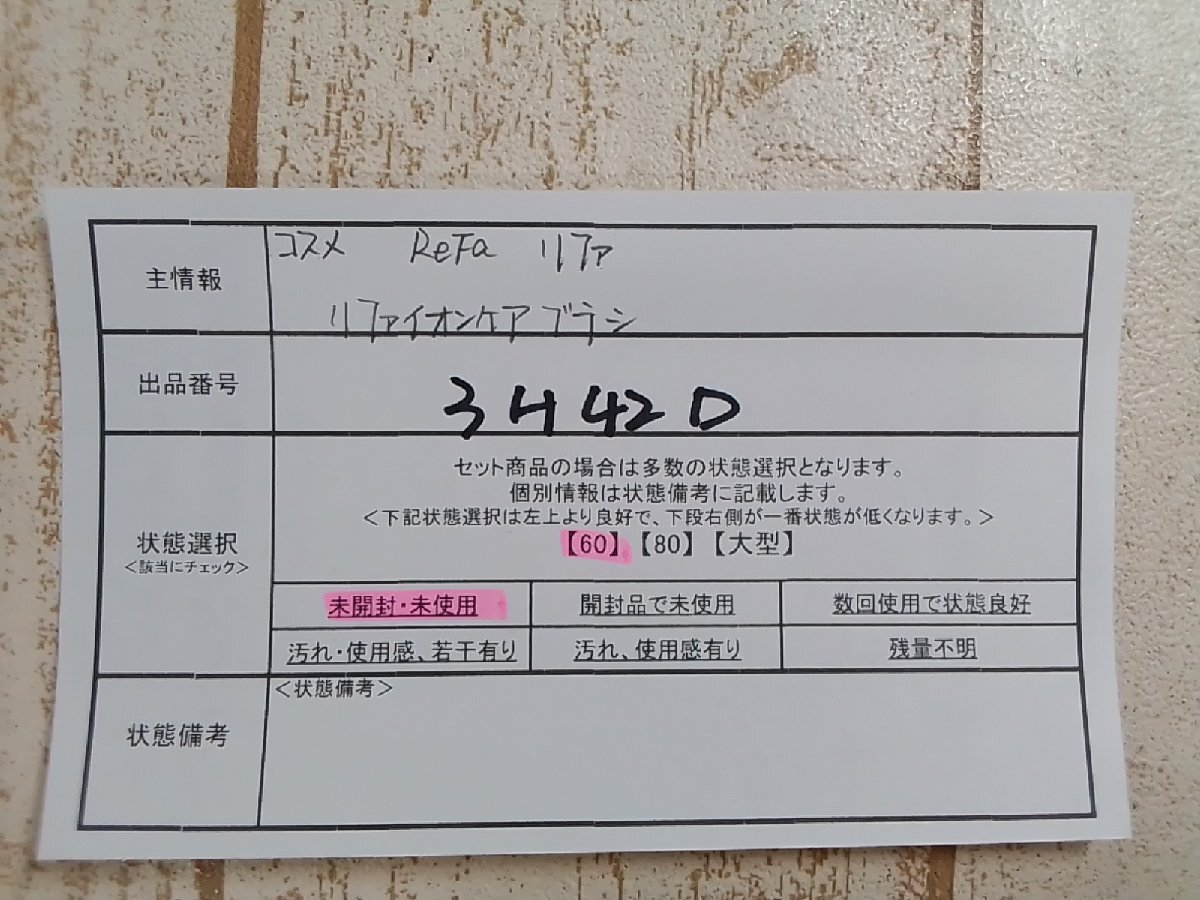 主情報
コスメ ReFa リファ
リファイオンケアブラシ
出品番号
3H42D
状態選択
＜該当にチェック＞
セット商品の場合は多数の状態選択となります。
個別情報は状態備考に記載します。
＜下記状態選択は左上より良好で、下段右側が一番状態が低くなります。＞
【60】【80】【大型】
未開封・未使用 開封品で未使用 数回使用で状態良好
汚れ・使用感、若干有り 汚れ、使用感有り 残量不明
状態備考
＜状態備考＞